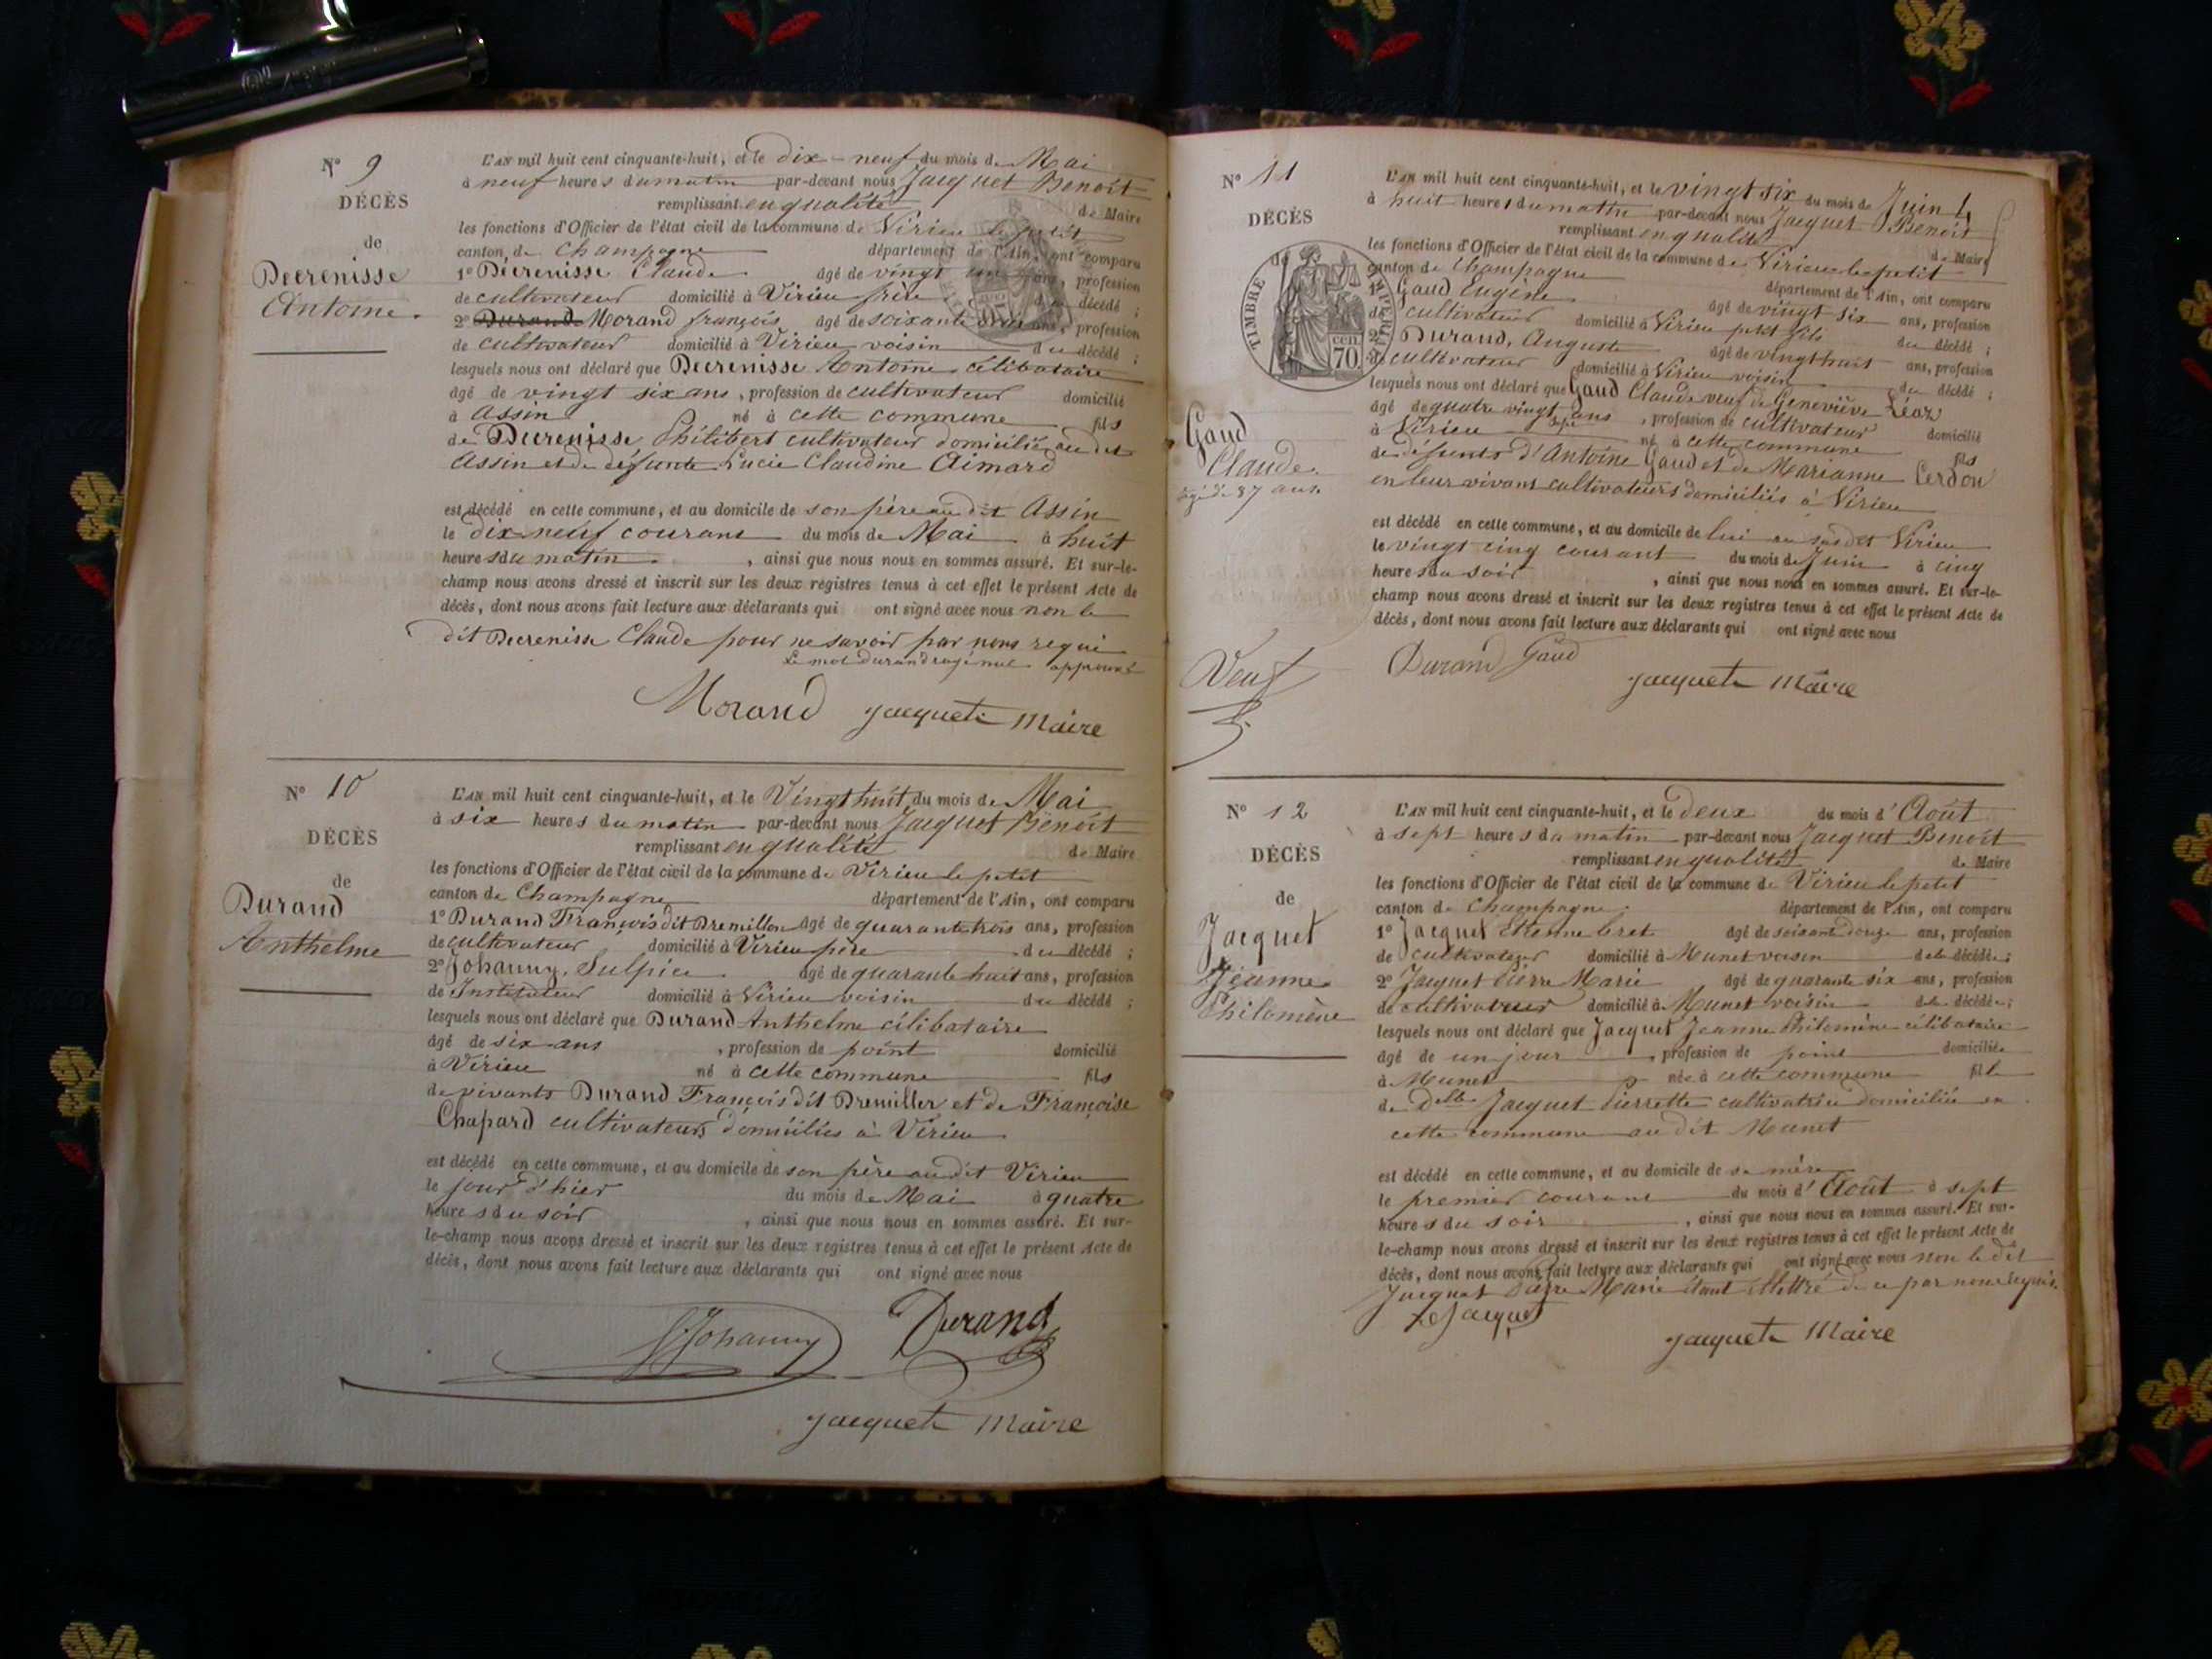 N° 9
DÉCÈS
de
Decrenisse
Antoine.
L'AN mil huit cent cinquante-huit, et le dix-neuf du mois de Mai
à neuf heures du matin par-devant nous Jacquet Benoit
remplissant en qualité de Maire
les fonctions d'Officier de l'état civil de la commune de Virieu le petit
canton de Champagne département de l'Ain, ont comparu
1° Decrenisse Claude âgé de vingt ans, profession
de cultivateur domicilié à Virieu frère du décédé ;
2° Durand Morand françois âgé de soixante ans, profession
de cultivateur domicilié à Virieu voisin du décédé ;
lesquels nous ont déclaré que Decrenisse Antoine célibataire
âgé de vingt six ans, profession de cultivateur domicilié
à Assin né à cette commune fils
de Decrenisse Philibert cultivateur domicilié au dit
Assin et de défunte Lucie Claudine Aimard
est décédé en cette commune, et au domicile de son père au dit Assin
le dix neuf courant du mois de Mai à huit
heures du matin, ainsi que nous nous en sommes assuré. Et sur-le-
champ nous avons dressé et inscrit sur les deux registres tenus à cet effet le présent Acte de
décès, dont nous avons fait lecture aux déclarants qui ont signé avec nous non le
dit Decrenisse Claude pour ne savoir par nous requi
Le mot durand rayé nul approuvé
Morand Jacquet Maire
N° 10
DÉCÈS
de
Durand
Anthelme
L'AN mil huit cent cinquante-huit, et le Vingt huit du mois de Mai
à six heures du matin par-devant nous Jacquet Benoit
remplissant en qualité de Maire
les fonctions d'Officier de l'état civil de la commune de Virieu le petit
canton de Champagne département de l'Ain, ont comparu
1° Durand François dit Dremillon âgé de quarante trois ans, profession
de cultivateur domicilié à Virieu père du décédé ;
2° Johanny, Sulpice âgé de quarante huit ans, profession
de Instituteur domicilié à Virieu voisin du décédé ;
lesquels nous ont déclaré que Durand Anthelme célibataire
âgé de six ans, profession de point domicilié
à Virieu né à cette commune fils
de vivants Durand François dit Dremiller et de Françoise
Chapard cultivateurs domiciliés à Virieu
est décédé en cette commune, et au domicile de son père au dit Virieu
le jour d'hier du mois de Mai à quatre
heures du soir, ainsi que nous nous en sommes assuré. Et sur-
le-champ nous avons dressé et inscrit sur les deux registres tenus à cet effet le présent Acte de
décès, dont nous avons fait lecture aux déclarants qui ont signé avec nous
SJohanny Durand
Jacquet Maire
N° 11
DÉCÈS
TIMBRE
CEN 70
Gaud
Claude.
âgé de 87 ans.
Veuf
L'AN mil huit cent cinquante-huit, et le vingt six du mois de Juin
à huit heures du matin par-devant nous Jacquet Benoit
remplissant en qualité de Maire
les fonctions d'Officier de l'état civil de la commune de Virieu le petit
canton de Champagne département de l'Ain, ont comparu
1° Gaud Eugène âgé de vingt six ans, profession
de cultivateur domicilié à Virieu petit fils du décédé ;
2° Durand, Auguste âgé de vingt huit ans, profession
cultivateur domicilié à Virieu voisin du décédé ;
lesquels nous ont déclaré que Gaud Claude veuf de Geneviève Réoz
âgé de quatre vingt sept ans, profession de cultivateur domicilié
à Virieu né à cette commune fils
de défunts d'Antoine Gaud et de Marianne Cerdon
en leur vivant cultivateurs domiciliés à Virieu
est décédé en cette commune, et au domicile de lui au susdit Virieu
le vingt cinq courant du mois de Juin à cinq
heures du soir, ainsi que nous nous en sommes assuré. Et sur-le-
champ nous avons dressé et inscrit sur les deux registres tenus à cet effet le présent Acte de
décès, dont nous avons fait lecture aux déclarants qui ont signé avec nous
Durand Gaud
Jacquet Maire
N° 12
DÉCÈS
de
Jacquet
Jeanne
Philomène
L'AN mil huit cent cinquante-huit, et le deux du mois d'Août
à sept heures du matin par-devant nous Jacquet Benoit
remplissant en qualité de Maire
les fonctions d'Officier de l'état civil de la commune de Virieu le petit
canton de Champagne département de l'Ain, ont comparu
1° Jacquet Etienne âgé de soixante douze ans, profession
de cultivateur domicilié à Munet voisin de la décédée ;
2° Jacquet Pierre Marie âgé de quarante six ans, profession
de cultivateur domicilié à Munet voisin de la décédée ;
lesquels nous ont déclaré que Jacquet Jeanne Philomène célibataire
âgé de un jour, profession de point domiciliée
à Munet née à cette commune fille
de Delle Jacquet Pierrette cultivatrice domiciliée en
cette commune au dit Munet
est décédé en cette commune, et au domicile de sa mère
le premier courant du mois d'Août à sept
heures du soir, ainsi que nous nous en sommes assuré. Et sur-
le-champ nous avons dressé et inscrit sur les deux registres tenus à cet effet le présent Acte de
décès, dont nous avons fait lecture aux déclarants qui ont signé avec nous non le dit
Jacquet Pierre Marie étant illettré de ce par nous requis.
Jacquet
Jacquet Maire